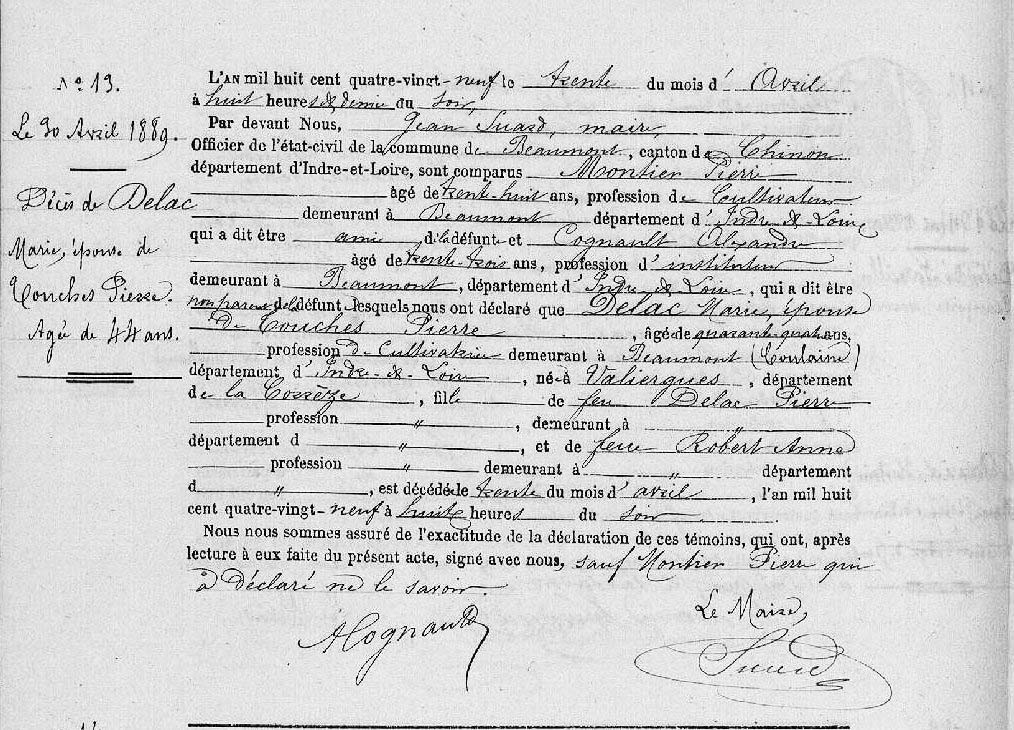 N° 19.
Le 30 Avril 1889.
Décès de Delac
Marie, épouse de
Couches Pierre.
Agé de 44 ans.
L'AN mil huit cent quatre-vingt-neuf le trente du mois d' Avril
à huit heures et demie du soir,
Par devant Nous, Jean Suard, maire,
Officier de l'état-civil de la commune de Beaumont, canton de Chinon
département d'Indre-et-Loire, sont comparus Montier Pierre
âgé de trente-huit ans, profession de Cultivateur
demeurant à Beaumont département d' Indre-&-Loire
qui a dit être ami d la défunte et Cognault Alexandre
âgé de trente-trois ans, profession d' instituteur
demeurant à Beaumont, département d' Indre-&-Loire, qui a dit être
non parent de la défunt, lesquels nous ont déclaré que Delac Marie, épouse
de Couches Pierre, âgé de quarante quatre ans,
profession de Cultivatrice demeurant à Beaumont (Coulaine)
département d' Indre-&-Loire, née à Valiergues, département
de la Corrèze, fille de feu Delac Pierre
profession " , demeurant à "
département d " , et de feue Robert Anne
profession " demeurant à " département
d " , est décédé le trente du mois d' avril, l'an mil huit
cent quatre-vingt-neuf à huit heures du soir
Nous nous sommes assuré de l'exactitude de la déclaration de ces témoins, qui ont, après
lecture à eux faite du présent acte, signé avec nous, sauf Montier Pierre qui
a déclaré ne le savoir.
Le Maire,
ACognault
Suard